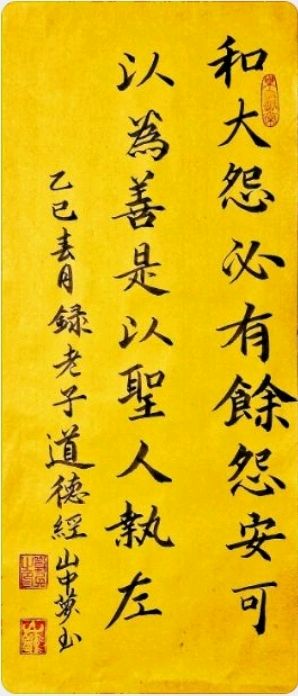 和大怨必有餘怨安可
以為善是以聖人執左
乙巳春月錄老子道德經山中夢玉